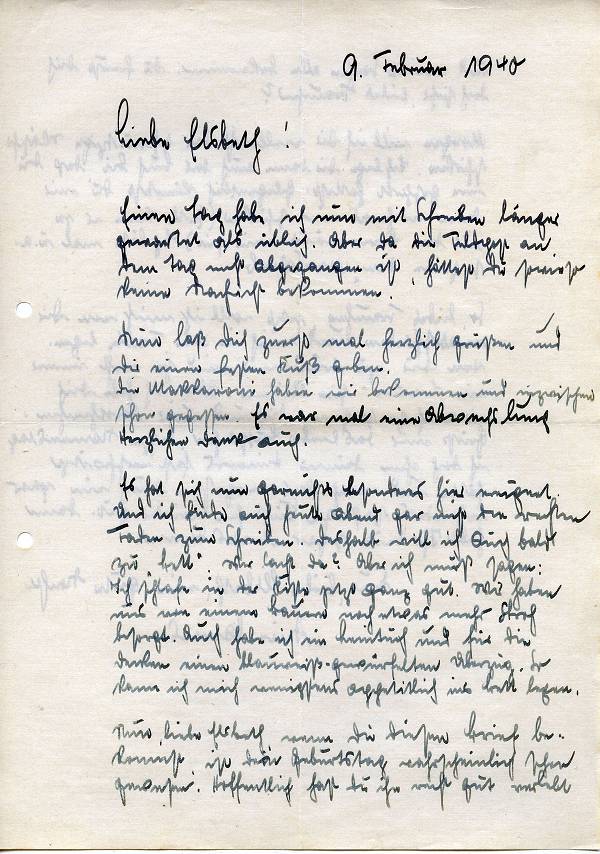 9. Februar 1940
Liebe Elsbeth!
Einen Tag habe ich nun mit Schreiben länger
gewartet als üblich. Aber da die Feldpost an
dem Tag nicht abgegangen ist, hättest Du sowieso
keine Nachricht bekommen.
Nun laß Dich zuerst mal herzlich grüßen und
Dir einen festen Kuß geben.
Die Makkaroni haben wir bekommen und inzwischen
schon gegessen. Es war mal eine Abwechslung
Herzlichen Dank auch.
Es hat sich nun garnichts besonders hier ereignet
Und ich finde auch heute abend gar nicht den rechten
Faden zum Schreiben. Deshalb will ich auch bald
zu "bett". Wer lacht da? Aber ich muß sagen:
Ich schlafe in der Kiste jetzt ganz gut. Wir haben
uns von einem Bauern noch etwas mehr Stroh
besorgt. Auch habe ich ein Leintuch und für die
Decken einen blauweiß-gewürfelten Überzug. So
kann ich mich wenigstens appetitlich ins bett legen.
Nun, liebe Elsbeth wenn Du diesen Brief be-
kommst ist dein Geburtstag wahrscheinlich schon
gewesen. Hoffentlich hast Du ihn recht gut verlebt